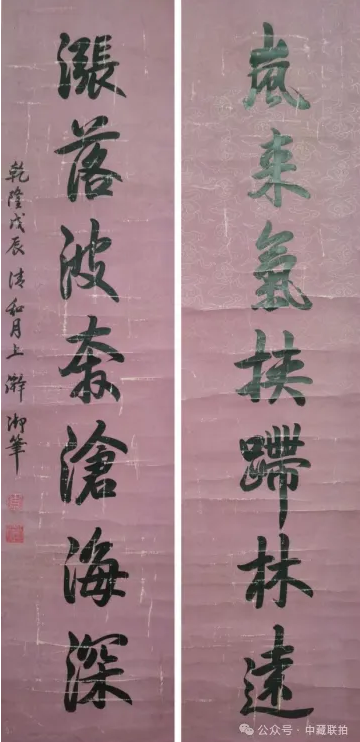 嵐来氣扶蹛林遠
漲落波奔滄海深
乾隆戊辰清和月上澣御筆
公众号·中藏联拍